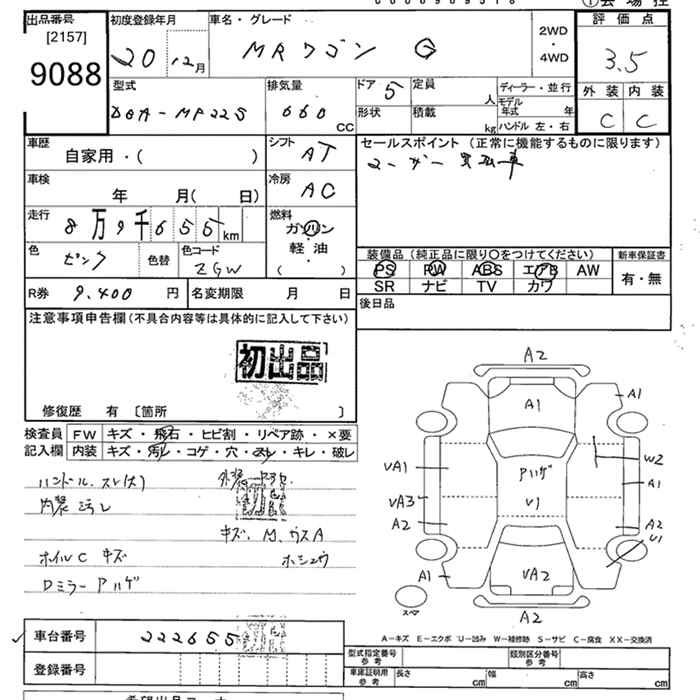 出品番号
[2157]
9088
初度登録年月
20 12月
車名・グレード
MRワゴン G
2WD
・
4WD
評価点
3.5
外装 内装
C C
型式
DBA-MF22S
排気量
660
CC
ドア 5
形状
定員 人
積載 kg
ディーラー・並行
モデル年式 年
ハンドル 左・右
車歴
自家用・( )
シフト AT
セールスポイント (正常に機能するものに限ります)
ユーザー買取車
車検
年 月( 日)
冷房 AC
走行
8万9千655 km
燃料
ガソリン
・
軽・油
( )
色 ピンク
色替
色コード ZGW
装備品 (純正品に限り○をつけてください)
PS PW ABS エアB AW
SR ナビ TV カワ
新車保証書
有・無
R券 9,400 円
名変期限 月 日
後日品
注意事項申告欄 (不具合内容等は具体的に記入して下さい)
初出品
修復歴 有 〔箇所 〕
検査員記入欄
FW キズ・飛石・ヒビ割・リペア跡・×要
内装 キズ・汚レ・コゲ・穴・スレ・キレ・破レ
ハンドル スレ(大)
内装 汚レ
キズ、M、ウスA
ホイルC キズ
ホシュウ
Dミラー アハゲ
A2
A1
A1
アハゲ
V1
VA1
VA3
A2
W2
A1
A2
U1
A1
VA2
A2
スペア
A-キズ E-エクボ U-凹み W-補修跡 S-サビ C-腐食 XX-交換済
車台番号
222655
登録番号
型式指定番号 参考
類別区分番号 参考
車庫証明用 参考
長さ cm
幅 cm
高さ cm